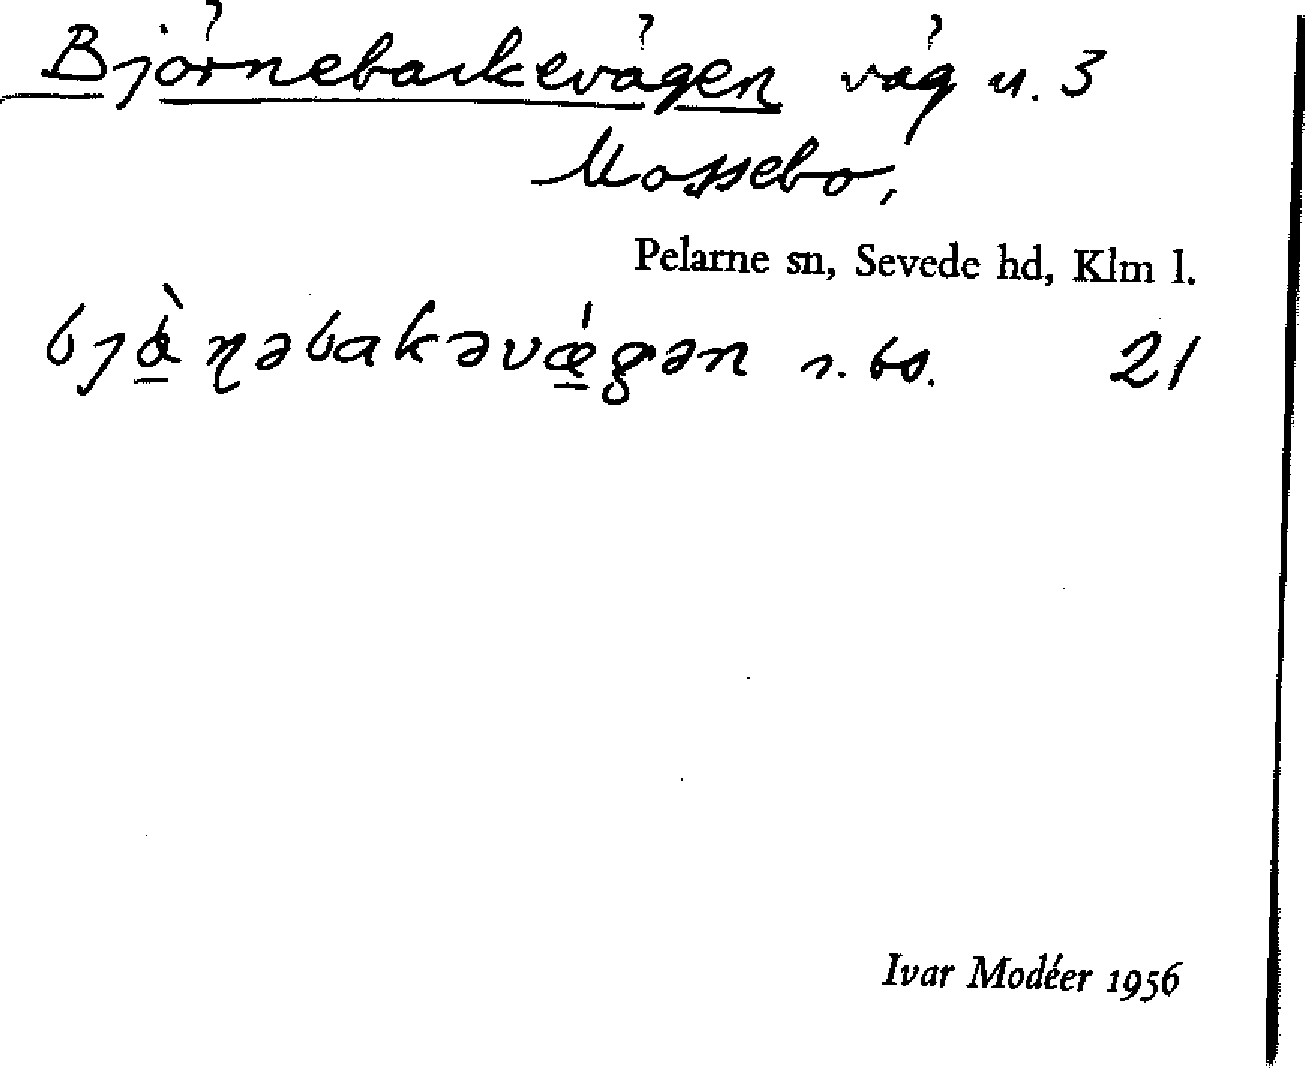 Björnebackevägen väg u. 3
Mossebo,
Pelarne sn, Sevede hd, Klm l.
bjö̀ɳəbakəvǽgən s. bs. 21
Ivar Modéer 1956